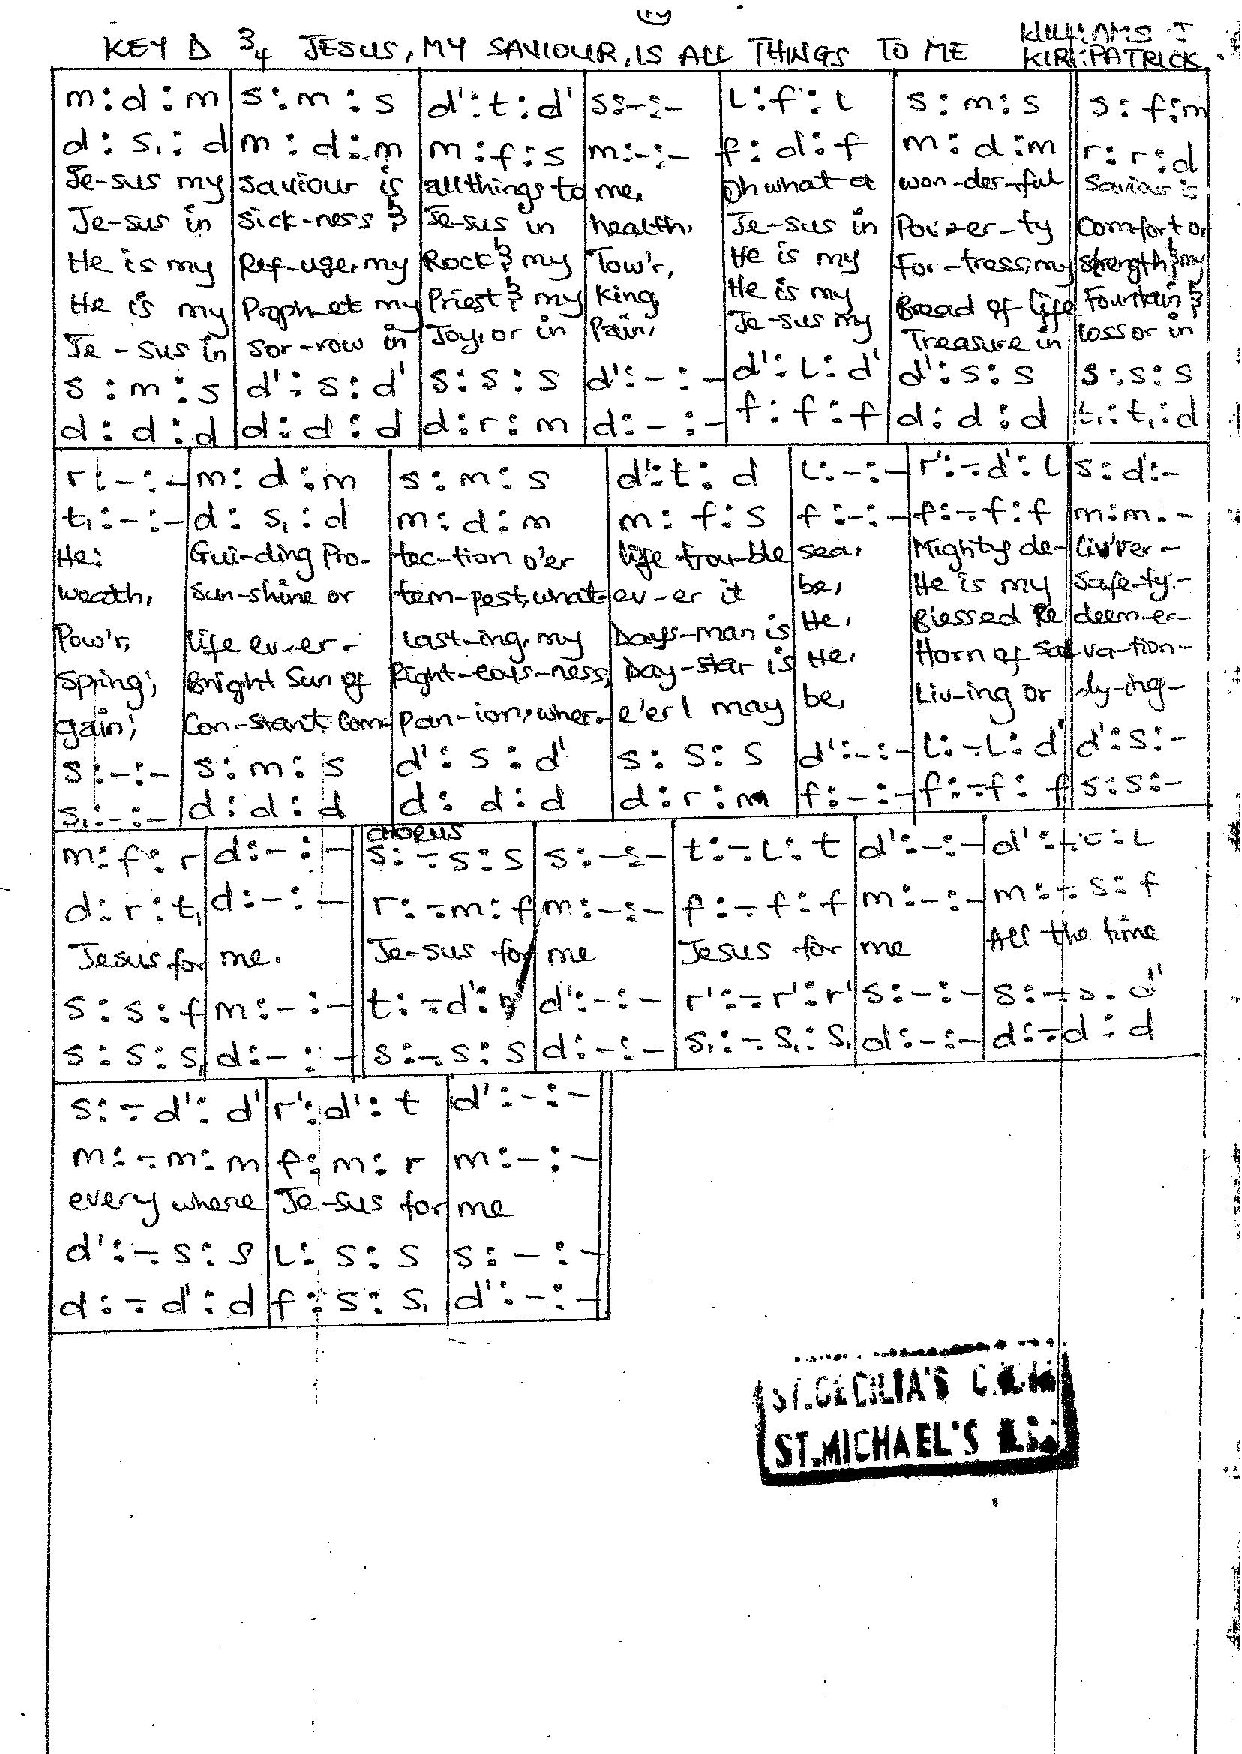 KEY D 3/4 JESUS, MY SAVIOUR, IS ALL THINGS TO ME
KIRKPATRICK
m : d : m | s : m : s | d' : t : d' | s : - : - | l : f : l | s : m : s | s : f : m
d : s, : d | m : d : m | m : f : s | m : - : - | f : d : f | m : d : m | r : r : d
Je-sus my | saviour is | all things to | me, | Oh what a | won-der-ful | Saviour is
Je-sus in | sick-ness & | Je-sus in | health, | Je-sus in | Pov-er-ty | Comfort or
He is my | Ref-uge, my | Rock & my | Tow'r, | He is my | For-tress, my | strength & my
He is my | Prophet my | Priest & my | King, | He is my | Bread of life | Fountain &
Je-sus in | sor-row in | Joy, or in | Pain, | Je-sus my | Treasure in | loss or in
s : m : s | d' : s : d' | s : s : s | d' : - : - | d' : l : d' | d' : s : s | s : s : s
d : d : d | d : d : d | d : r : m | d : - : - | f : f : f | d : d : d | t, : t, : d
r : - : - | m : d : m | s : m : s | d' : t : d | l : - : - | r' : - d' : l | s : d : -
t, : - : - | d : s, : d | m : d : m | m : f : s | f : - : - | f : - f : f | m : m . -
He: | Gui-ding Pro- | tec-tion o'er | life trou-ble | sea, | Mighty de- | liv'ver -
weath, | Sun-shine or | tem-pest, what- | ev-er it | be, | He is my | Safe-ty -
Pow'r, | life ev-er- | last-ing, my | Days-man is | He, | Blessed Re | deem-er-
Spring; | Bright Sun of | Right-eous-ness, | Day-star is | He, | Horn of Sal | va-tion-
gain; | Con-stant Com- | pan-ion, wher- | e'er I may | be, | Liv-ing or | dy-ing-
s : - : - | s : m : s | d' : s : d' | s : s : s | d' : - : - | l : - l : d' | d' : s : -
s, : - : - | d : d : d | d : d : d | d : r : m | f : - : - | f : - f : f | s : s : -
CHORUS
m : f : r | d : - : - | s : - s : s | s : - : - | t : - l : t | d' : - : - | d' : t : l
d : r : t, | d : - : - | r : - m : f | m : - : - | f : - f : f | m : - : - | m : - s : f
Jesus for | me. | Je-sus for | me | Jesus for | me | All the time
s : s : f | m : - : - | t : - d' : | d' : - : - | r' : - r' : r' | s : - : - | s : - s . d'
s : s : s, | d : - : - | s : - s : s | d : - : - | s, : - s, : s, | d : - : - | d : - d : d
s : - d' : d' | r' : d' : t | d' : - : -
m : - m : m | f : m : r | m : - : -
every where | Je-sus for | me
d' : - s : s | l : s : s | s : - : -
d : - d' : d | f : s : s, | d' : - : -
ST. CECILIA'S
ST. MICHAEL'S